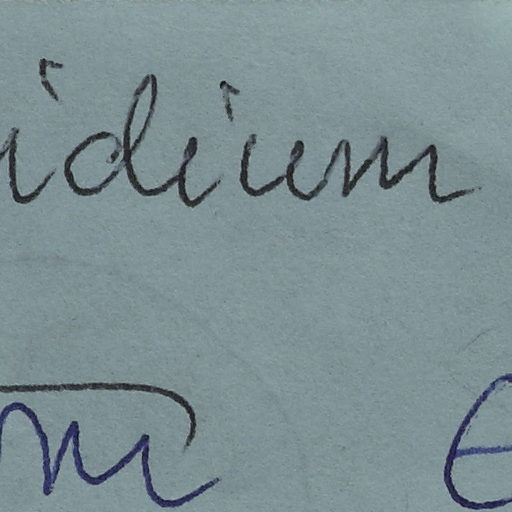 idium
m e